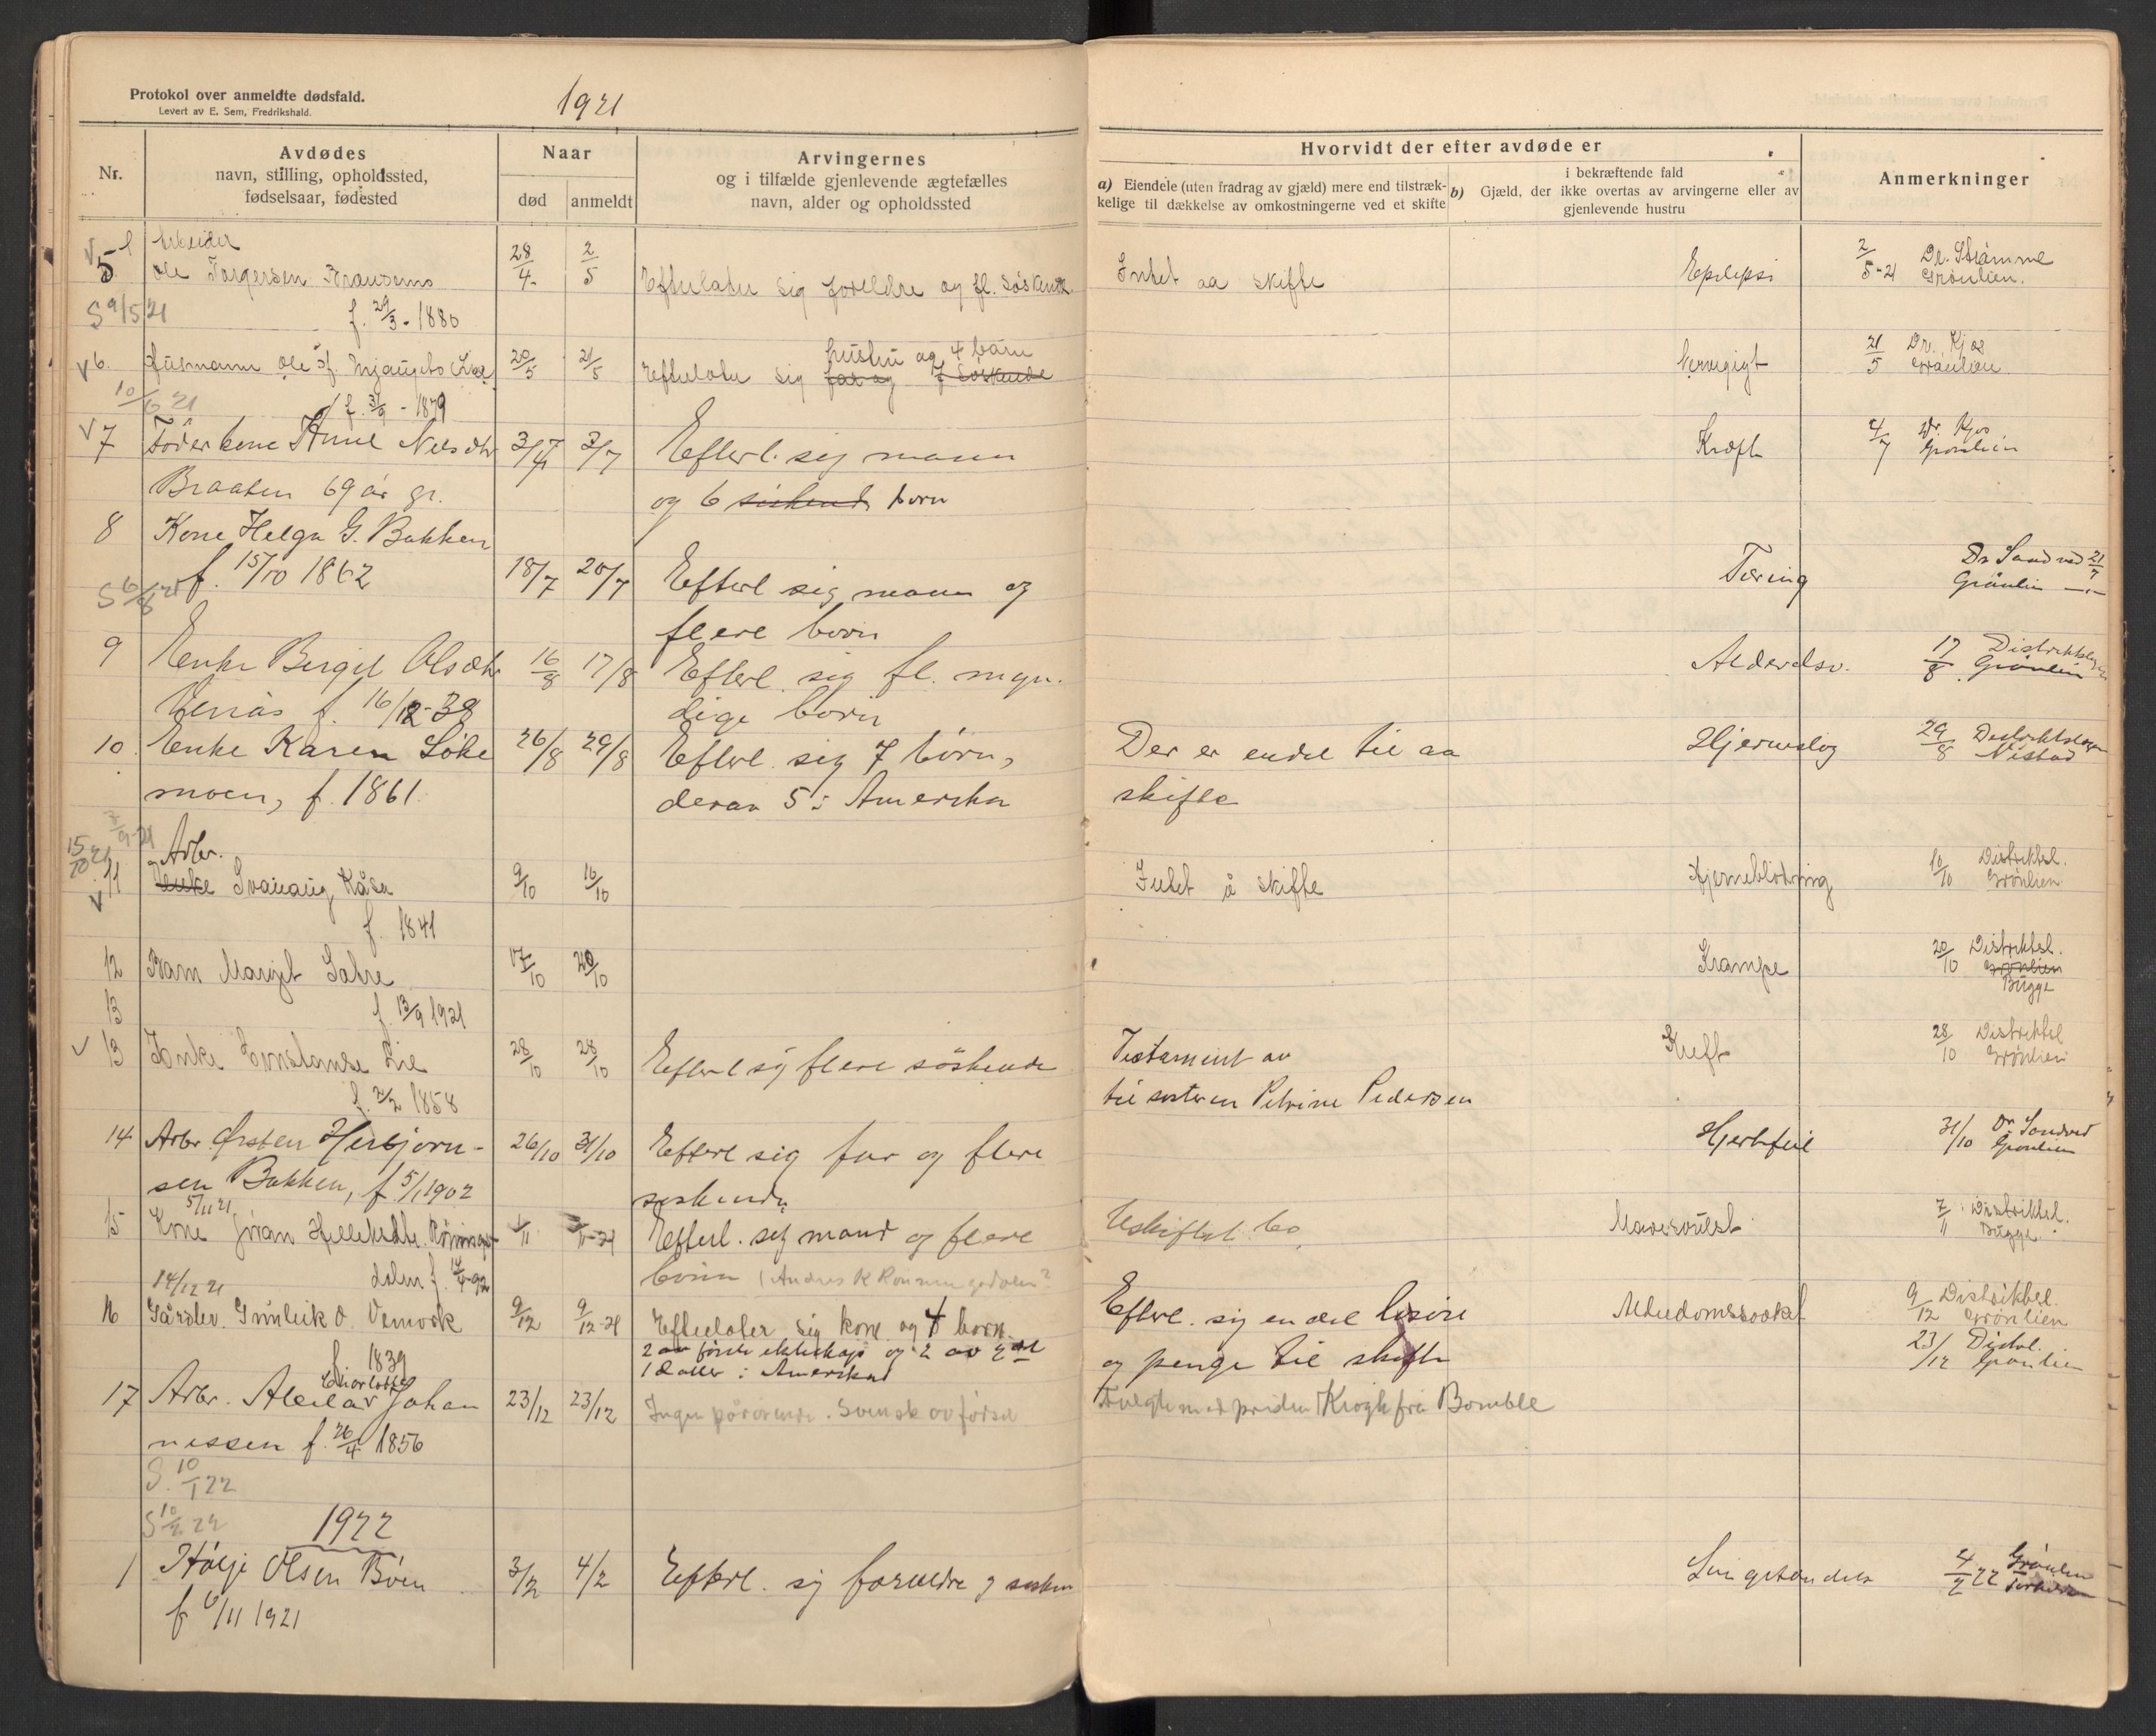 Protokol over anmeldte dødsfald.
Levert av E. Sem, Fredrikshald.
1921
Nr.
Avdødes
navn, stilling, opholdssted,
fødselsaar, fødested
Naar
død
anmeldt
Arvingernes
og i tilfælde gjenlevende ægtefælles
navn, alder og opholdssted
Hvorvidt der efter avdøde er
a) Eiendele (uten fradrag av gjæld) mere end tilstræk-
kelige til dækkelse av omkostningerne ved et skifte
i bekræftende fald
b) Gjæld, der ikke overtas av arvingerne eller av
gjenlevende hustru
Anmerkninger
5 Arbeider
Ole Torgersen
f. 29/3 - 1880
28/4 2/5
Efterlater sig foreldre og fl. søskende.
Intet aa skifte
Epilepsi
2/5-21 Dr. Strømme
Grønlien.
S 9/5 21
6. Husmann Ole
f. 3/9 - 1879
20/5 21/5
hustru og 4 barn
Efterlater sig far og 7 søskende
Nervegigt
21/5 Dr. Kjos
Grønlien
10/6 21
7 Føderkone Anne Nilsdtr
Braaten 69 år gl.
3/7 3/7
Efterl. sig mann
og 6 søskende born
Kræft
4/7 Dr. Kjos
Grønlien
8 Kone Helga G. Bakken
f. 15/10 1862
18/7 20/7
Efterl sig mann og
flere born
Tæring
Dr Sandved 21/7
Grønlien -"-
S 6/8 21
9 Enke Bergit Olsdtr
f. 16/12-38
16/8 17/8
Efterl. sig fl. myn-
dige born
Alderdsv.
17/8 Distriktslegen
Grønlien
10. Enke Karen Løke
moen, f. 1861.
26/8 29/8
Efterl. sig 7 børn,
derav 5 i Amerika
Der er endel til aa
skifte
Hjerneslag
29/8 Distriktslegen
Nistad
3/9-21
15/10 21
11 Arbr.
enke Svanaug Kåsa
f. 1841
9/10 16/10
Intet å skifte
Hjerneblødning
16/10 Distriktsl.
Grønlien
12 Barn Margit
f. 13/9 1921
17/10 20/10
Krampe
20/10 Distriktsl.
Grønlien
Bugge
13
13 Enke Constanse Lie
f. 2/2 1858
28/10 28/10
Efterl sig flere søskende
Testament av
til søsteren Petrine Pedersen
Kreft
28/10 Distriktsl
Grønlien
14 Arbr. Østen Herbjørn-
sen Bakken, f. 5/1 1902
26/10 31/10
Efterl sig far og flere
søskende
Hjertefeil
31/10 Dr. Sandved
Grønlien
5/11 21
15 Kone Jøran Helleksdtr. Rønninge-
dalen f.
Efterl. sig mand og flere
børn
Uskiftet bo.
Mavesvulst
7/11 Distriktsl.
Bugge.
14/12 21
16 Gårdbr. Gunleik O. Vemork
f. 1839
9/12 9/12-21
Efterlater sig kone og 4 born.
2 av første ekteskap og 2 av 2det
1 datter i Amerika
Efterl. sig en del løsøre
og penge til skifte
Alderdomssvakh
9/12 Distriktsl.
Grønlien
23/12 Distsl.
Grønlien
17 Arbr. Johan
nessen f. 26/4 1856
23/12 23/12
Ingen pårørende. Svensk av fødsel
Krogh fra Bamble
S. 10/1 22
S 10/2 22
1922
1 Hølje Olsen Bøen
f 6/11 1921
3/2 4/2
Efterl. sig foreldre og søsken
4/2 22 Grønlien